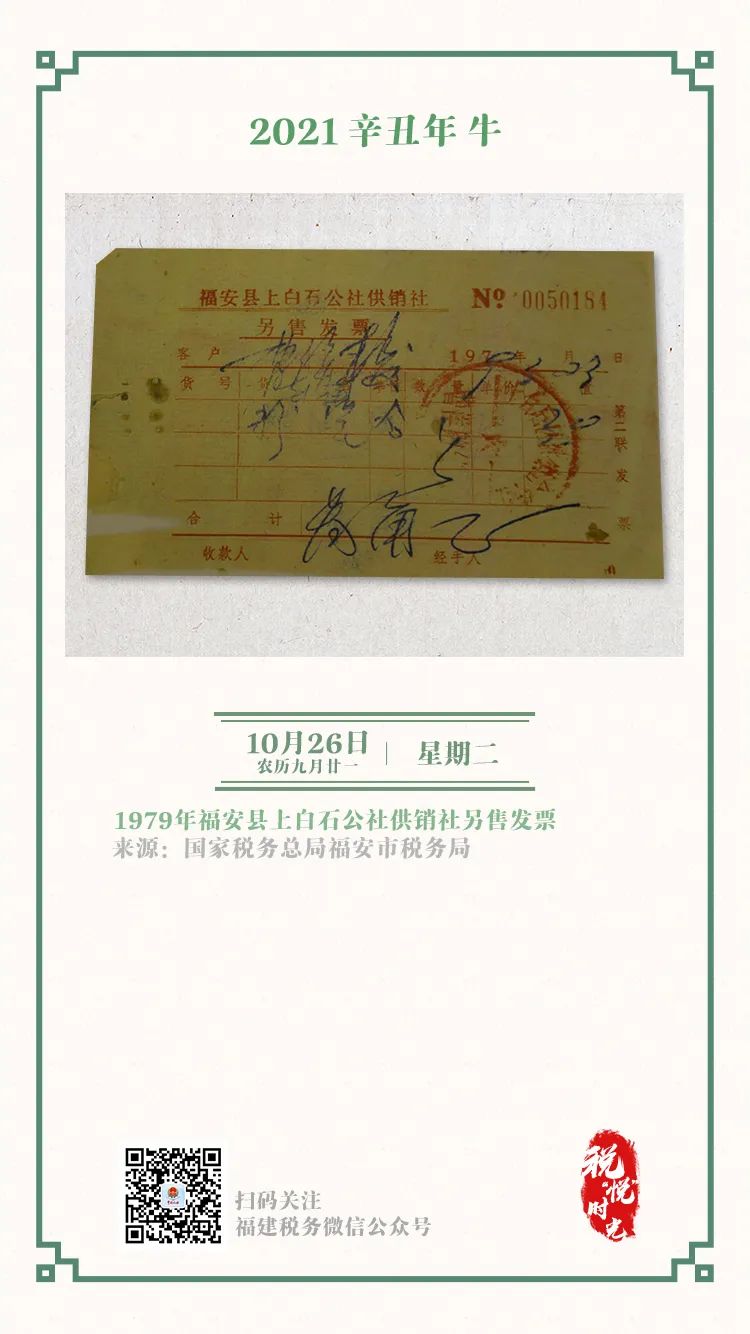 2021 辛丑年 牛
福安县上白石公社供销社 Nº 0050184
另售发票
客户 197 年 月 日
货号 数量 单价 值
第二联 发票
合计
收款人 经手人
10月26日 星期二
农历九月廿一
1979年福安县上白石公社供销社另售发票
来源：国家税务总局福安市税务局
扫码关注
福建税务微信公众号
税
“悦”
时
光